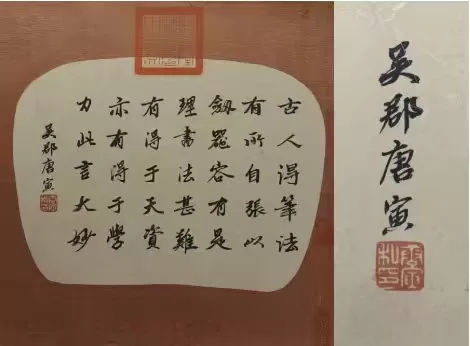 古人得筆法
有所自張以
劔器容有是
理書法甚難
有得于天資
亦有得于學
力此言大妙
吳郡唐寅
吳郡唐寅
唐寅私印